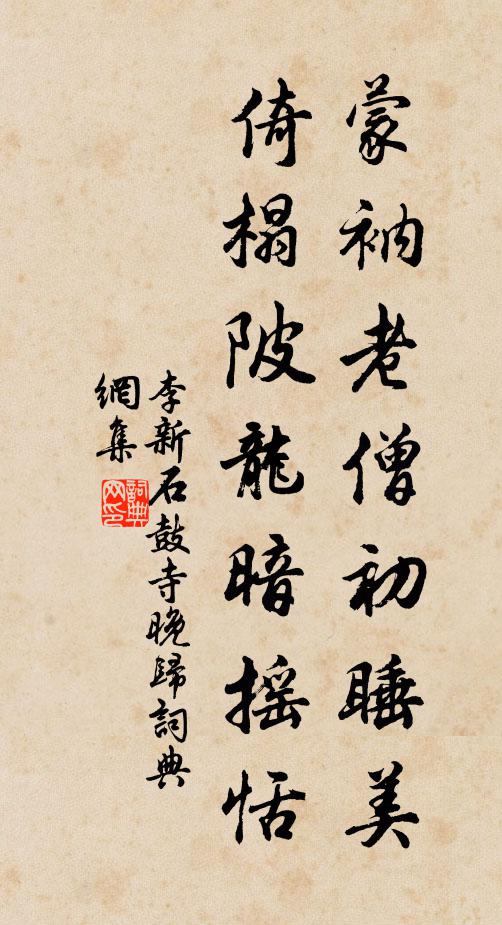 蒙衲老僧初睡美
倚榻陂龍暗摇恬
李新石鼓寺晚歸詞典
網集
詞典
网印